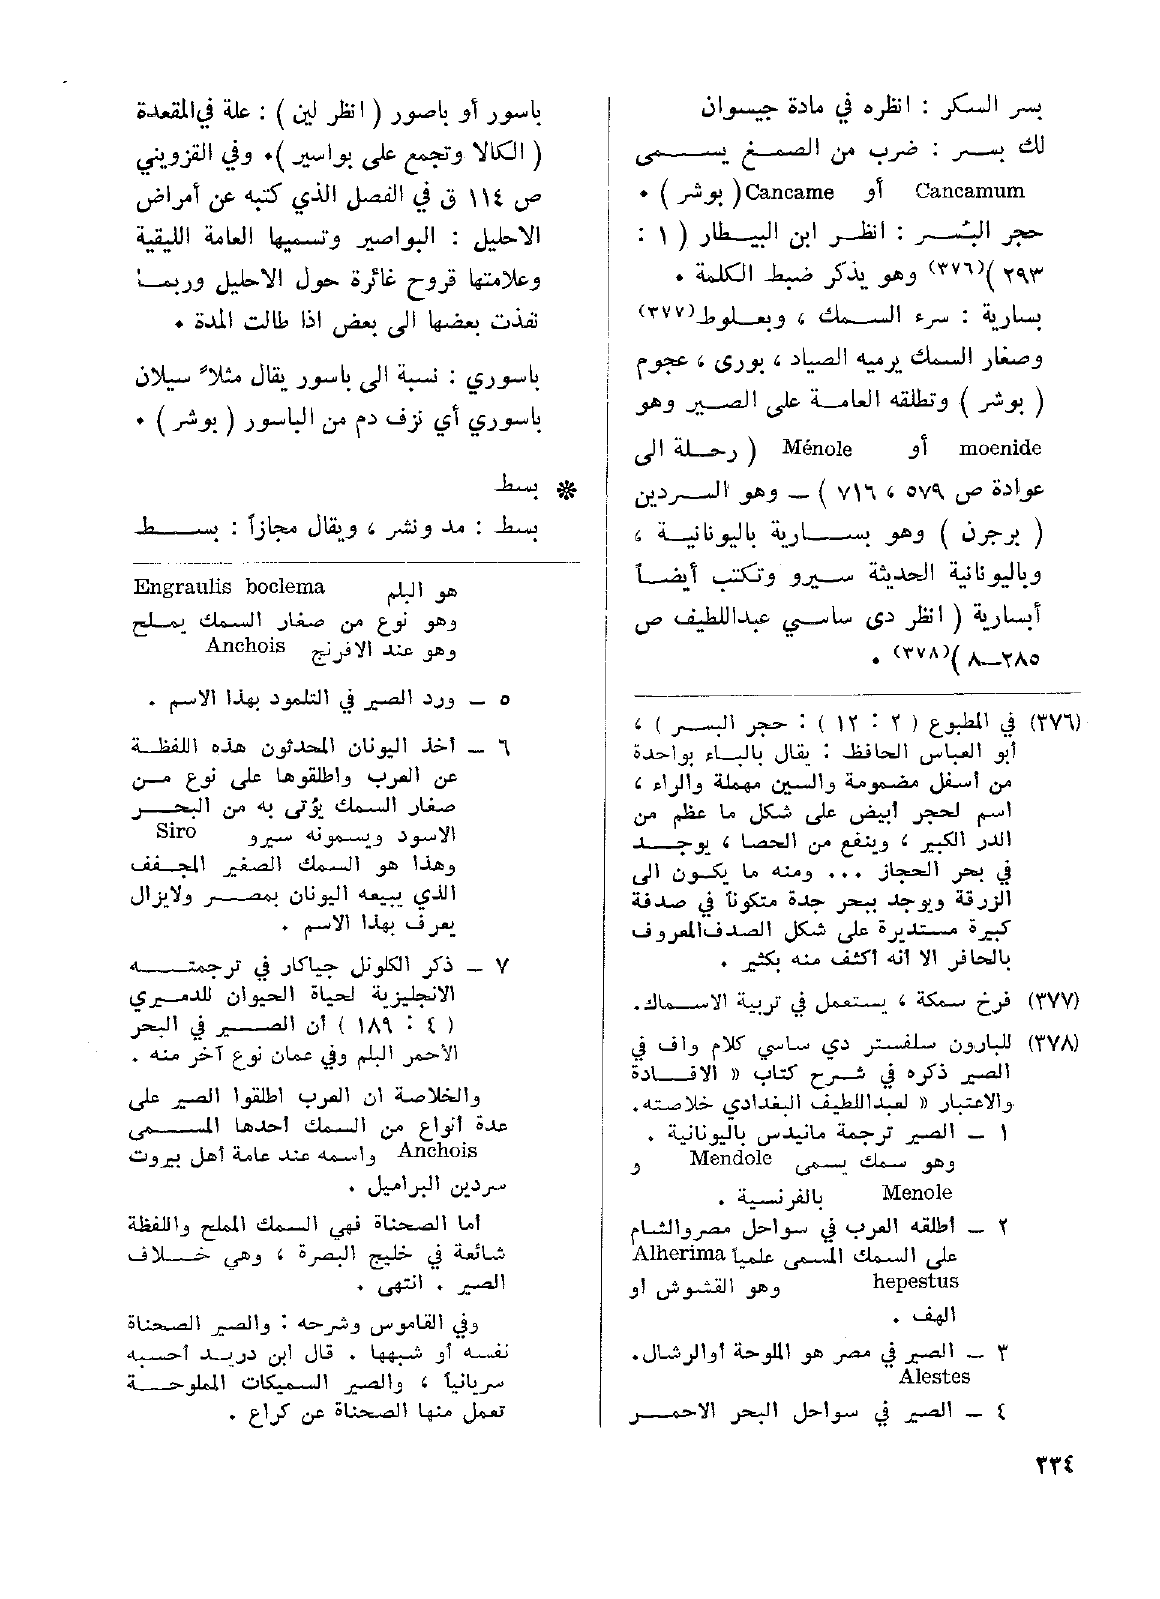 بسر السكر : انظره في مادة جيسوان
لك بسر : ضرب من الصمغ يسمى
Cancamum أو Cancame ( بوشر ) •
حجر البُسر : انظر ابن البيطار ( ١ :
٢٩٣ )(٣٧٦) وهو يذكر ضبط الكلمة •
بسارية : سرء السمك ، وبعلوط(٣٧٧)
وصغار السمك يرميه الصياد ، بوري ، عجوم
( بوشر ) وتطلقه العامة على الصير وهو
moenide أو Ménole ( رحلة الى
عوادة ص ٥٧٩ ، ٧١٦ ) — وهو السردين
( برجرن ) وهو بسارية باليونانية ،
وباليونانية الحديثة سيرو وتكتب أيضاً
أبسارية ( انظر دى ساسي عبداللطيف ص
٢٨٥—٨ )(٣٧٨) •
(٣٧٦) في المطبوع ( ٢ : ١٢ ) : حجر البسر ) ،
أبو العباس الحافظ : يقال بالباء بواحدة
من أسفل مضمومة والسين مهملة والراء ،
اسم لحجر أبيض على شكل ما عظم من
الدر الكبير ، وينفع من الحصا ، يوجد
في بحر الحجاز ... ومنه ما يكون الى
الزرقة ويوجد ببحر جدة متكوناً في صدفة
كبيرة مستديرة على شكل الصدف المعروف
بالحافر الا انه اكثف منه بكثير .
(٣٧٧) فرخ سمكة ، يستعمل في تربية الاسماك.
(٣٧٨) للبارون سلفستر دي ساسي كلام واف في
الصير ذكره في شرح كتاب « الافادة
والاعتبار « لعبداللطيف البغدادي خلاصته.
١ — الصير ترجمة مانيدس باليونانية .
وهو سمك يسمى Mendole و
Menole بالفرنسية .
٢ — أطلقه العرب في سواحل مصر والشام
على السمك المسمى علمياً Alherima
hepestus وهو القشوش او
الهف .
٣ — الصير في مصر هو الملوحة أوالرشال.
Alestes
٤ — الصير في سواحل البحر الاحمر
باسور أو باصور ( انظر لين ) : علة في المقعدة
( الكالا وتجمع على بواسير )• وفي القزويني
ص ١١٤ ق في الفصل الذي كتبه عن أمراض
الاحليل : البواصير وتسميها العامة الليقية
وعلامتها قروح غائرة حول الاحليل وربما
نفذت بعضها الى بعض اذا طالت المدة •
باسوري : نسبة الى باسور يقال مثلاً سيلان
باسوري أي نزف دم من الباسور ( بوشر ) •
❊ بسط
بسط : مد ونشر ، ويقال مجازاً : بسط
هو البلم Engraulis boclema
وهو نوع من صغار السمك يملح
وهو عند الافرنج Anchois
٥ — ورد الصير في التلمود بهذا الاسم .
٦ — أخذ اليونان المحدثون هذه اللفظة
عن العرب واطلقوها على نوع من
صغار السمك يؤتى به من البحر
الاسود ويسمونه سيرو Siro
وهذا هو السمك الصغير المجفف
الذي يبيعه اليونان بمصر ولايزال
يعرف بهذا الاسم .
٧ — ذكر الكلونل جياكار في ترجمته
الانجليزية لحياة الحيوان للدميري
( ٤ : ١٨٩ ) أن الصير في البحر
الاحمر البلم وفي عمان نوع آخر منه .
والخلاصة ان العرب اطلقوا الصير على
عدة أنواع من السمك احدها المسمى
Anchois واسمه عند عامة أهل بيروت
سردين البراميل .
أما الصحناة فهي السمك المملح واللفظة
شائعة في خليج البصرة ، وهي خلاف
الصير . انتهى .
وفي القاموس وشرحه : والصير الصحناة
نفسه أو شبهها . قال ابن دريد أحسبه
سريانياً ، والصير السميكات المملوحة
تعمل منها الصحناة عن كراع .
٣٣٤